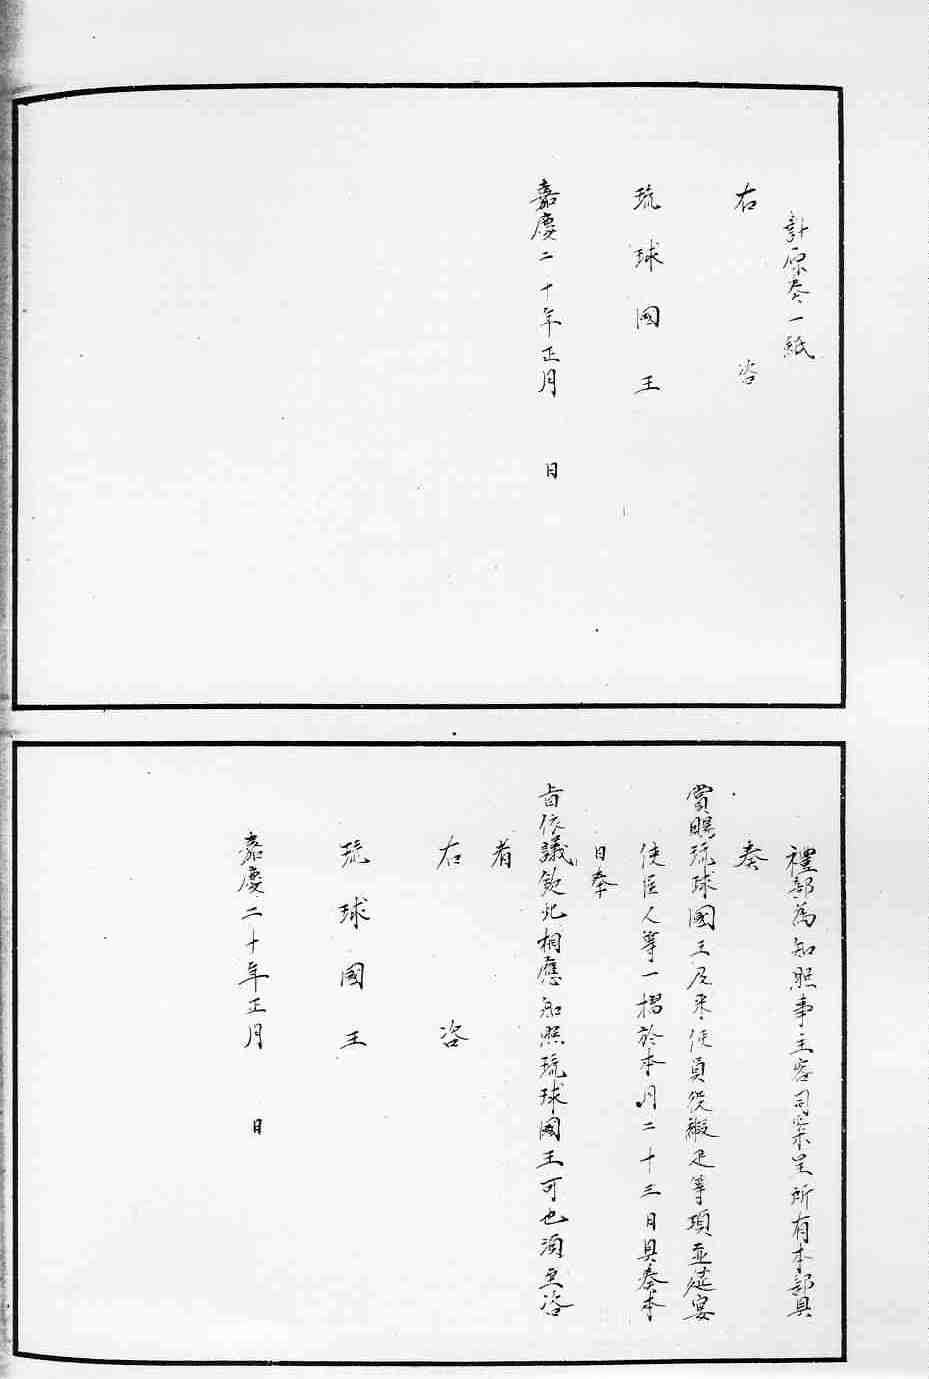 計原奏一紙
右 咨
琉球國王
嘉慶二十年正月 日
禮部為知照事主客司案呈所有本部具
奏
賞賜琉球國王及來使員役緞疋等項並筵宴
使臣人等一摺於本月二十三日具奏本
日奉
旨依議欽此相應知照琉球國王可也須至咨
者
右 咨
琉球國王
嘉慶二十年正月 日